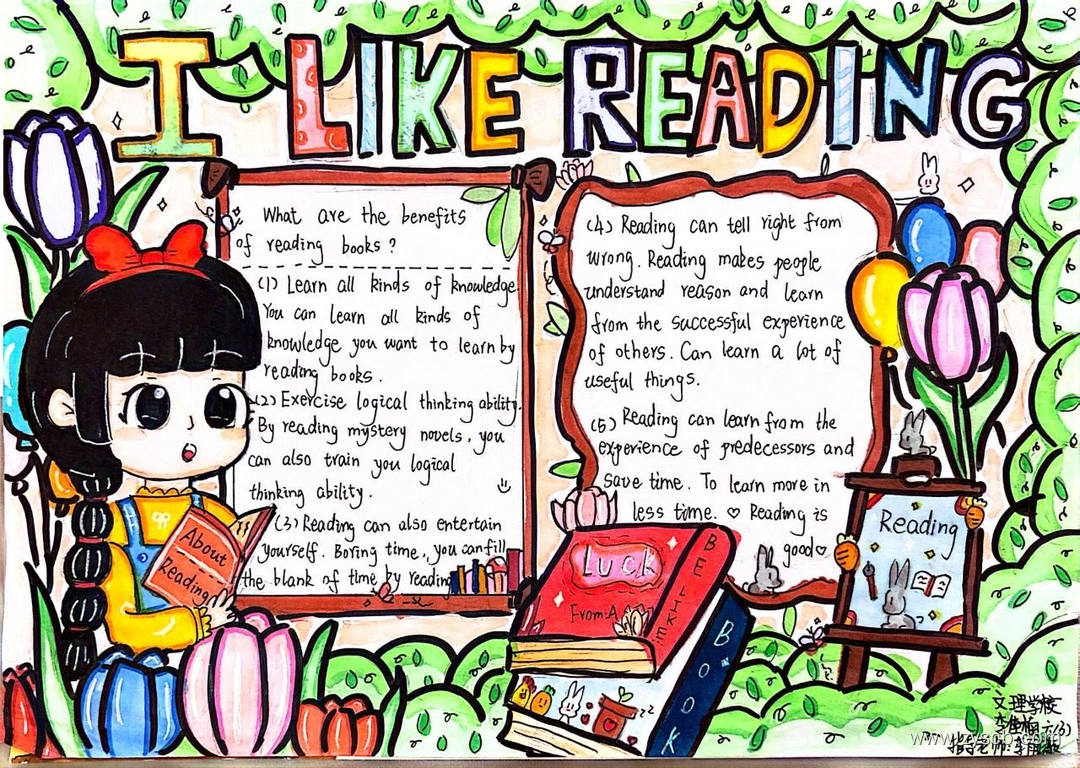 I LIKE READING
What are the benefits
of reading books?
(1) Learn all kinds of knowledge.
You can learn all kinds of
knowledge you want to learn by
reading books.
(2) Exercise logical thinking ability.
By reading mystery novels, you
can also train you logical
thinking ability.
(3) Reading can also entertain
yourself. Boring time, you can fill
the blank of time by reading
(4) Reading can tell right from
wrong. Reading makes people
understand reason and learn
from the successful experience
of others. Can learn a lot of
useful things.
(5) Reading can learn from the
experience of predecessors and
save time. To learn more in
less time. ♡ Reading is
good♡
About
Reading
LUCK
From:A
BE LIKE
BOOK
zz
Reading
文理学校
六(3)
指导老师: